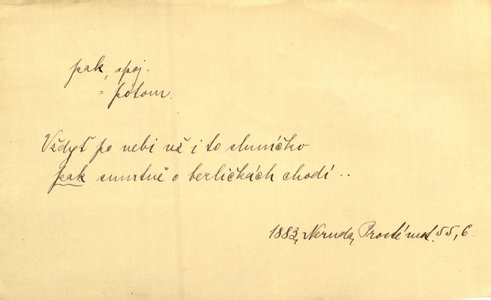 pak, spoj.
= potom.
Vždyť po nebi už i to sluníčko
pak smutně o berličkách chodí..
1883, Neruda, Prosté mot. 55, 6.